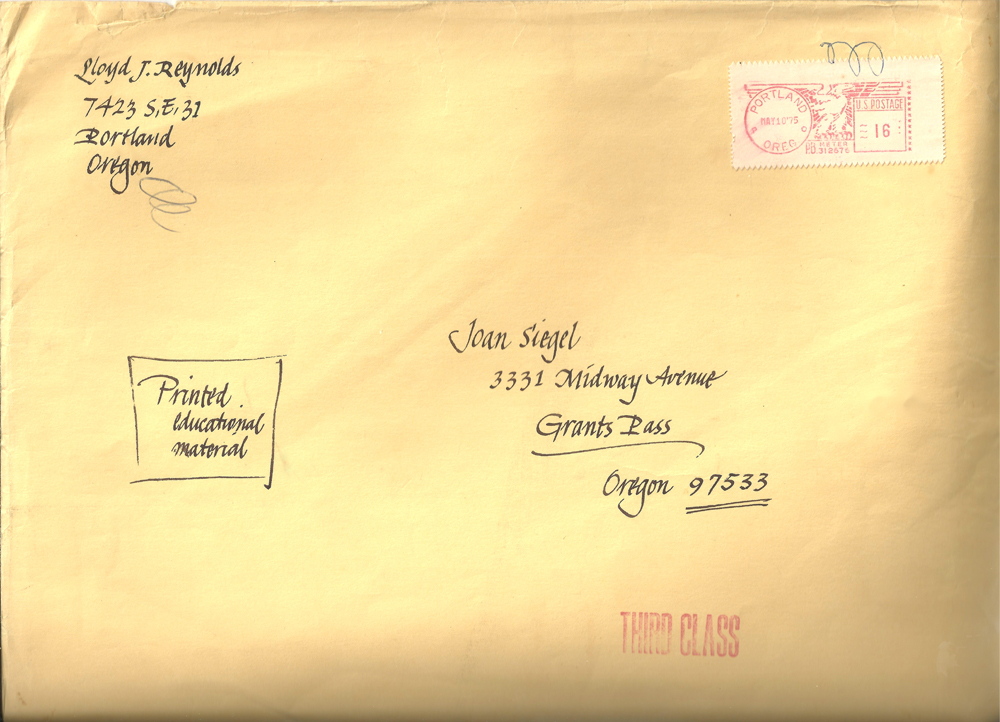 Lloyd J. Reynolds
7423 S.E. 31
Portland
Oregon
PORTLAND
MAY 10 '75
OREG
U.S. POSTAGE
16
PB METER
312676
Joan Siegel
3331 Midway Avenue
Grants Pass
Oregon 97533
Printed
educational
material
THIRD CLASS